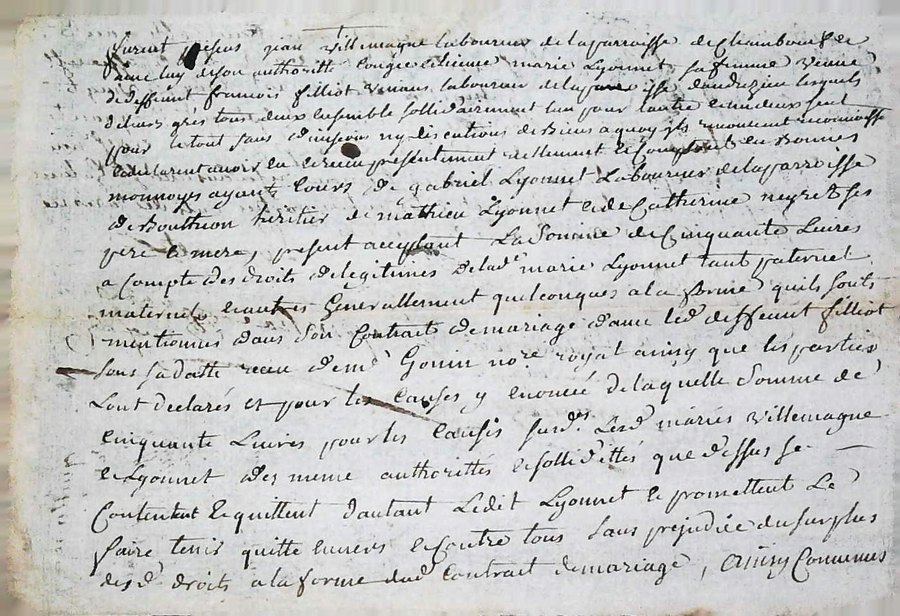 furent presens jean Villemagne laboureur de la parroisse de Chambouf &
avec luy de son authorité congée licience marie Lyonnet sa femme veuve
de deffeunt francois filliot vivans laboureur de la parroisse daudezieu lesquels
de leurs gres tous deux ensemble sollidairement lun pour lautre lun deux seul
pour le tout sans division ny discutions de Biens a quoy ils renoncent reconnoisse
& declarent avoir eu & receu presentement reellement & Comptent en Bonnes
monnoyes ayants cours de gabriel Lyonnet Laboureur de la parroisse
de Bouttheon héritier de mathieu Lyonnet & de Catherine neyret ses
pere & mere, present acceptant La Somme de Cinquante Livres
a Compte des droits de legitimes de lade marie Lyonnet tant paternel
maternels & autres Generallement quelconques a la forme quils sont
mentionnes dans son Contract de mariage d'avec led deffeunt filliot
sous sa datte receu de me Gonin nore royal ainsy que les parties
Lont declarés et pour les Causes y enoncée de laquelle Somme de
Cinquante Livres pour les Causes surds Lesd mariés Villemagne
& Lyonnet des meme authorittés & sollidittés que dessus se
Contentent & quittent dautant Ledit Lyonnet & promettent Le
faire tenir quitte envers & Contre tous sans prejudice du surplus
desd droits a la forme dud Contrat de mariage, ainsy Convenus